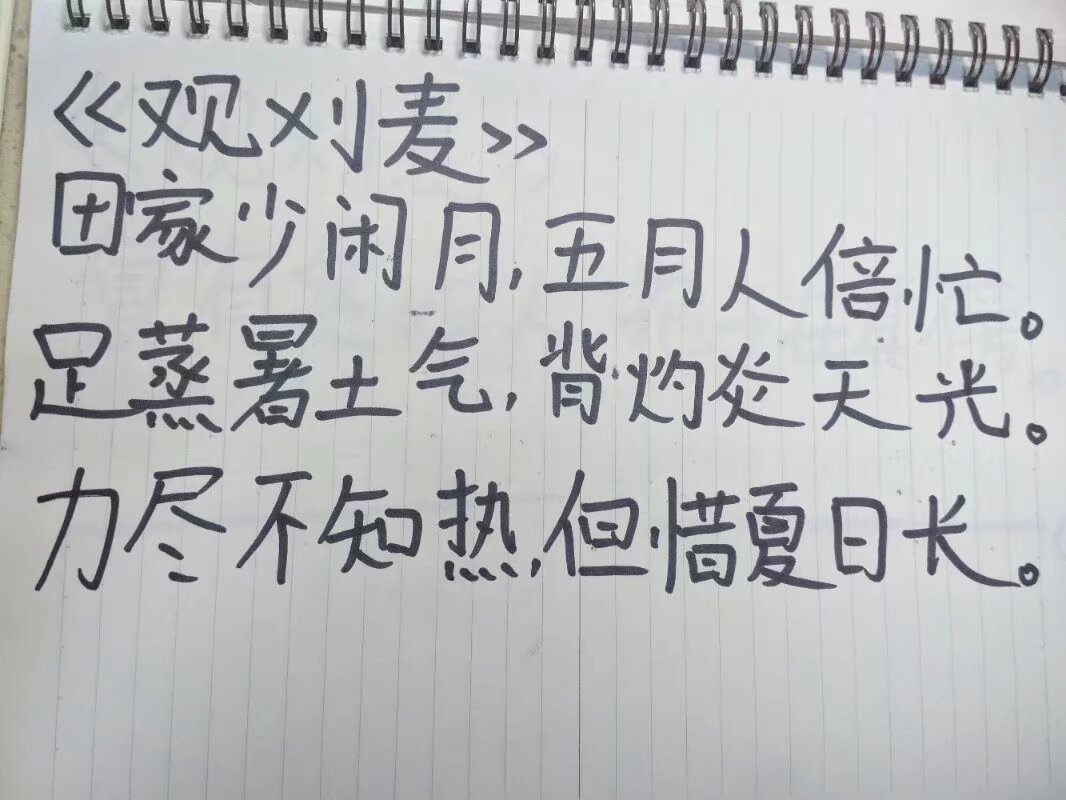 《观刈麦》
田家少闲月,五月人倍忙。
足蒸暑土气,背灼炎天光。
力尽不知热,但惜夏日长。